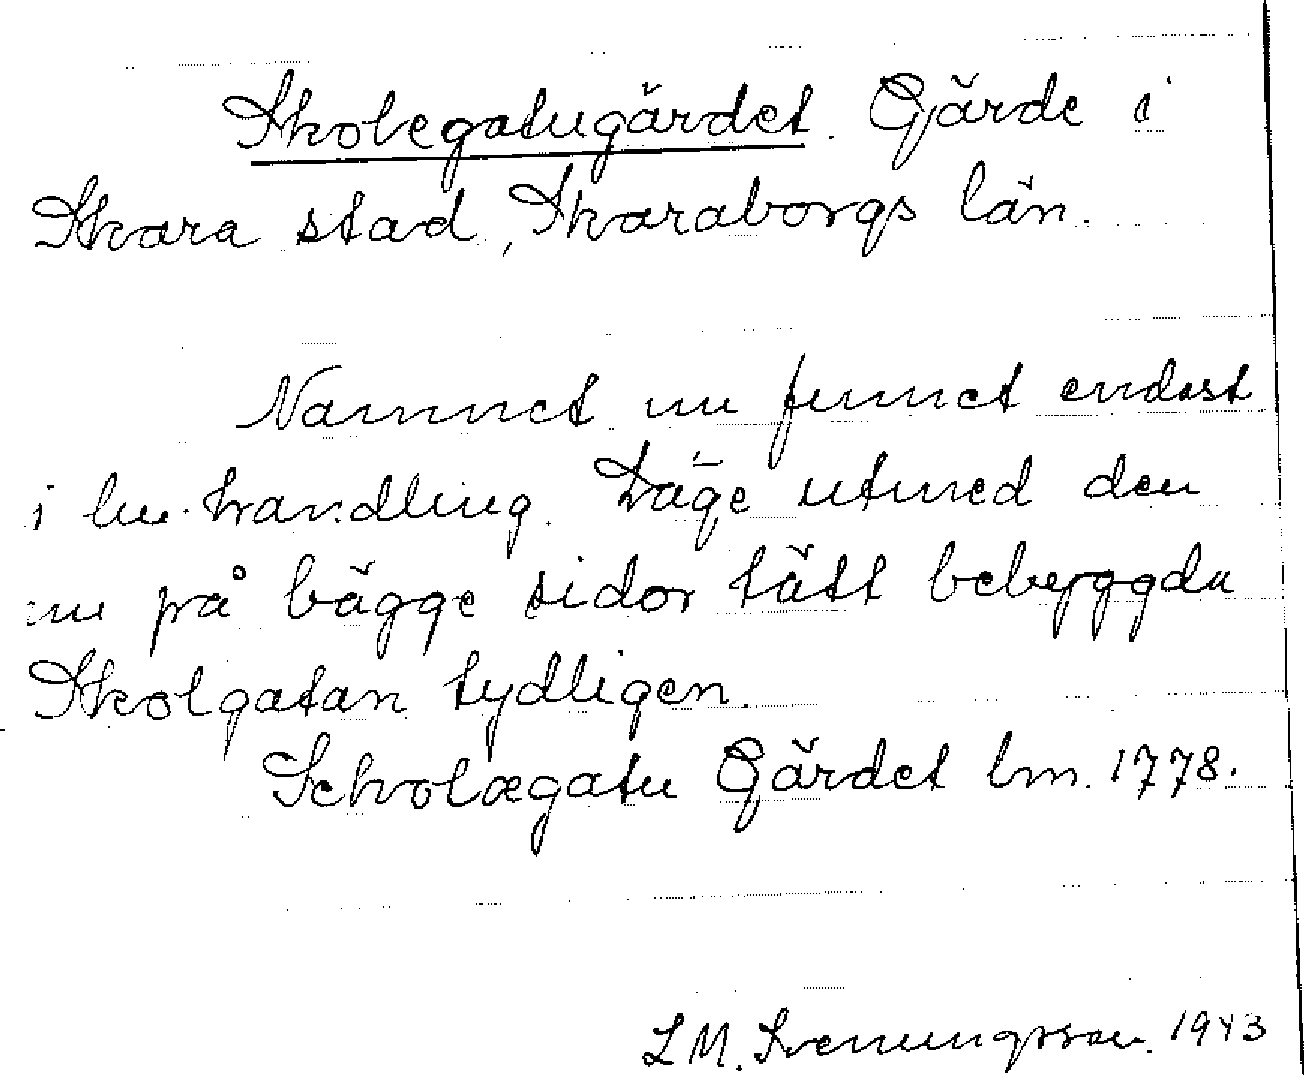 Skolegatugärdet. Gärde i
Skara stad, Skaraborgs län.
Namnet nu funnet endast
i lm. handling. Läge utmed den
nu på bägge sidor tätt bebyggda
Skolgatan tydligen.
Scholægatu Gärdet lm. 1778.
L M. Svenungsson. 1943